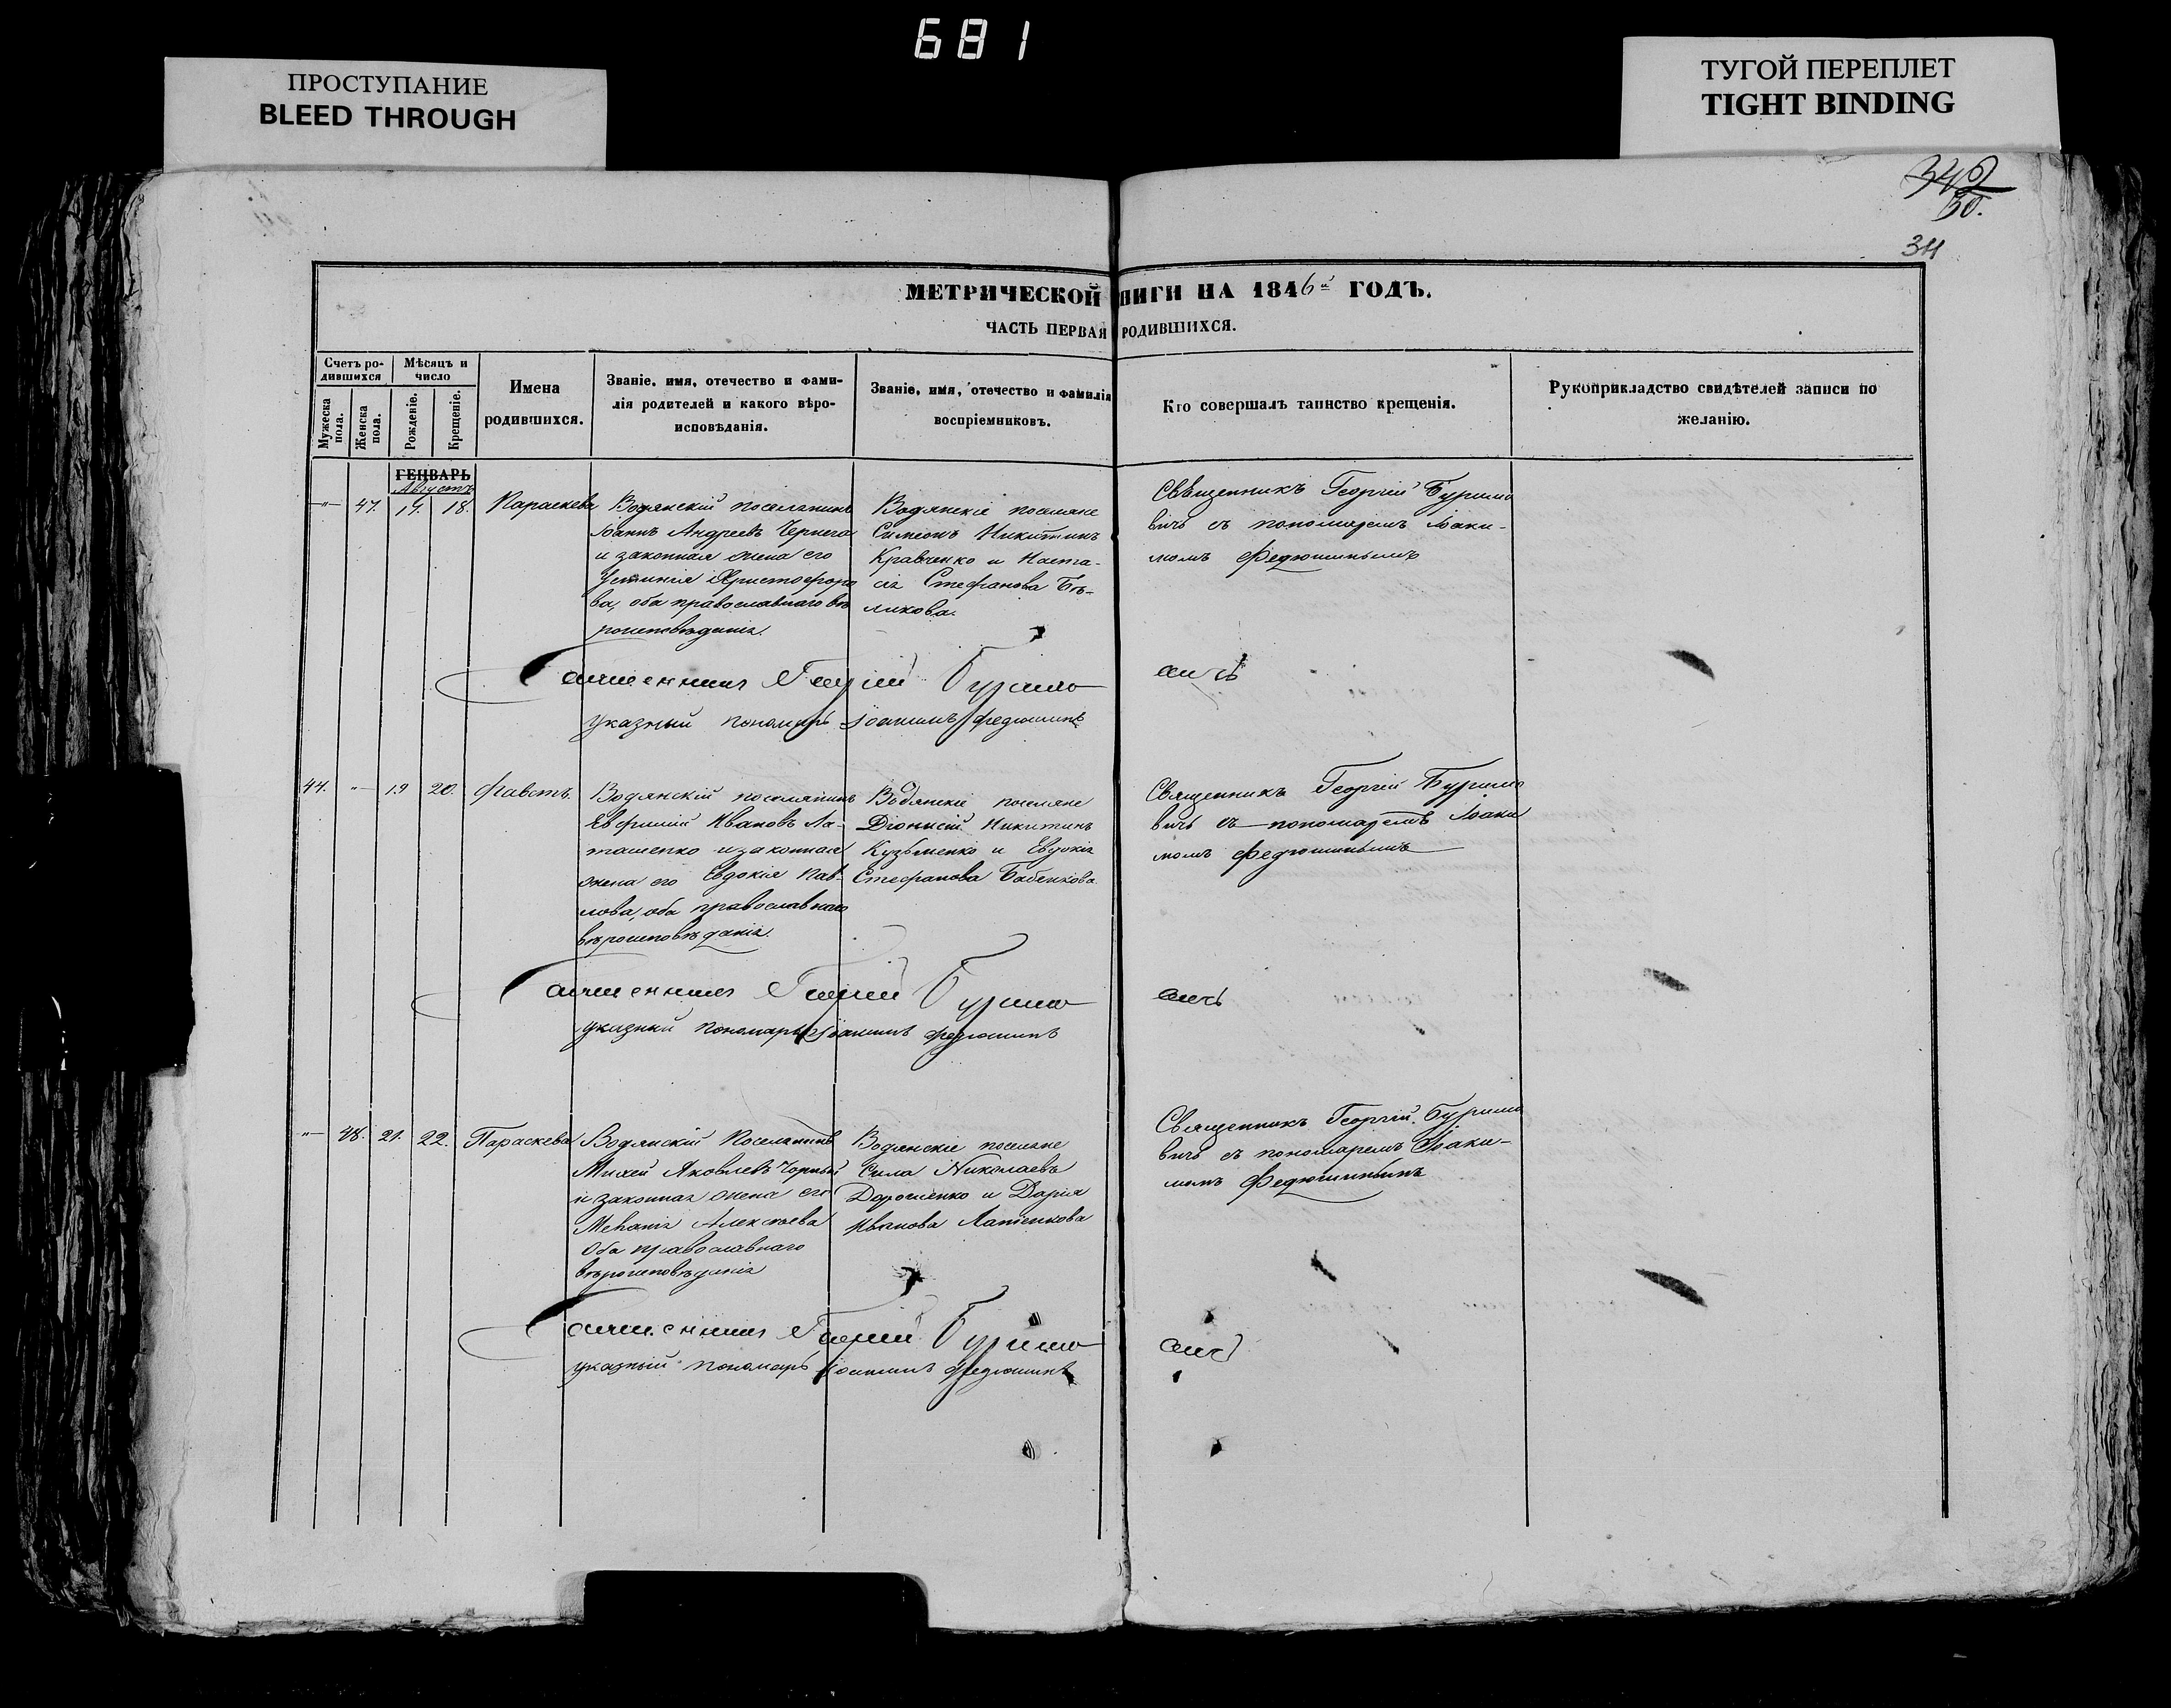 681
ПРОСТУПАНИЕ
BLEED THROUGH
ТУГОЙ ПЕРЕПЛЕТ
TIGHT BINDING
34
МЕТРИЧЕСКОЙ НИГИ НА 1846й ГОДЪ.
ЧАСТЬ ПЕРВАЯ РОДИВШИХСЯ.
Счетъ ро-
дившихся
Мужеска пола.
Женска пола.
Мѣсяцъ и
число
Рожденіе.
Крещеніе.
Имена
родившихся.
Званіе, имя, отечество и фами-
лія родителей и какого вѣро-
исповѣданія.
Званіе, имя, отечество и фамилія
воспріемниковъ.
Кто совершалъ таинство крещенія.
Рукоприкладство свидѣтелей записи по
желанію.
ГЕНВАРЬ
Августъ
47. 18. Параскева
Водянскій поселянинъ
Іоаннъ Андреевъ Чернега
и законная жена его
Устинія Христофоро
ва, оба православнаго вѣ
роисповѣданія.
Водянскіе поселяне
Симеонъ Никитинъ
Кравченко и Наста-
сія Стефанова Бѣ-
ликова.
Священникъ Георгій Буримо
вичъ съ пономаремъ Іоаки-
момъ Федюшинымъ
Священникъ Георгій Буримо
вичъ
указный пономарь Іоакимъ Федюшинъ
44. " 19 20. Фавстъ.
Водянскій поселянинъ
Евфимій Ивановъ Ла-
ташенко и законная
жена его Евдокія Пав-
лова, оба православнаго
вѣроисповѣданія.
Водянскіе поселяне
Діонисій Никитинъ
Кузьменко и Евдокія
Стефанова Бабенкова
Священникъ Георгій Буримо
вичъ съ пономаремъ Іоаки
момъ Федюшинымъ
Священникъ Георгій Буримо
вичъ
указный пономарь Іоакимъ Федюшинъ
" 48. 21. 22. Параскева
Водянскій Поселянинъ
Михей Яковлевъ Чорный
и законная жена его
Алексѣева
Оба православнаго
вѣроисповѣданія
Водянскіе поселяне
Сила Николаевъ
Дорошенко и Дарія
Иванова
Священникъ Георгій Буримо
вичъ съ пономаремъ Іоаки-
момъ Федюшинымъ
Священникъ Георгій Буримо
вичъ
указный пономарь Іоакимъ Федюшинъ